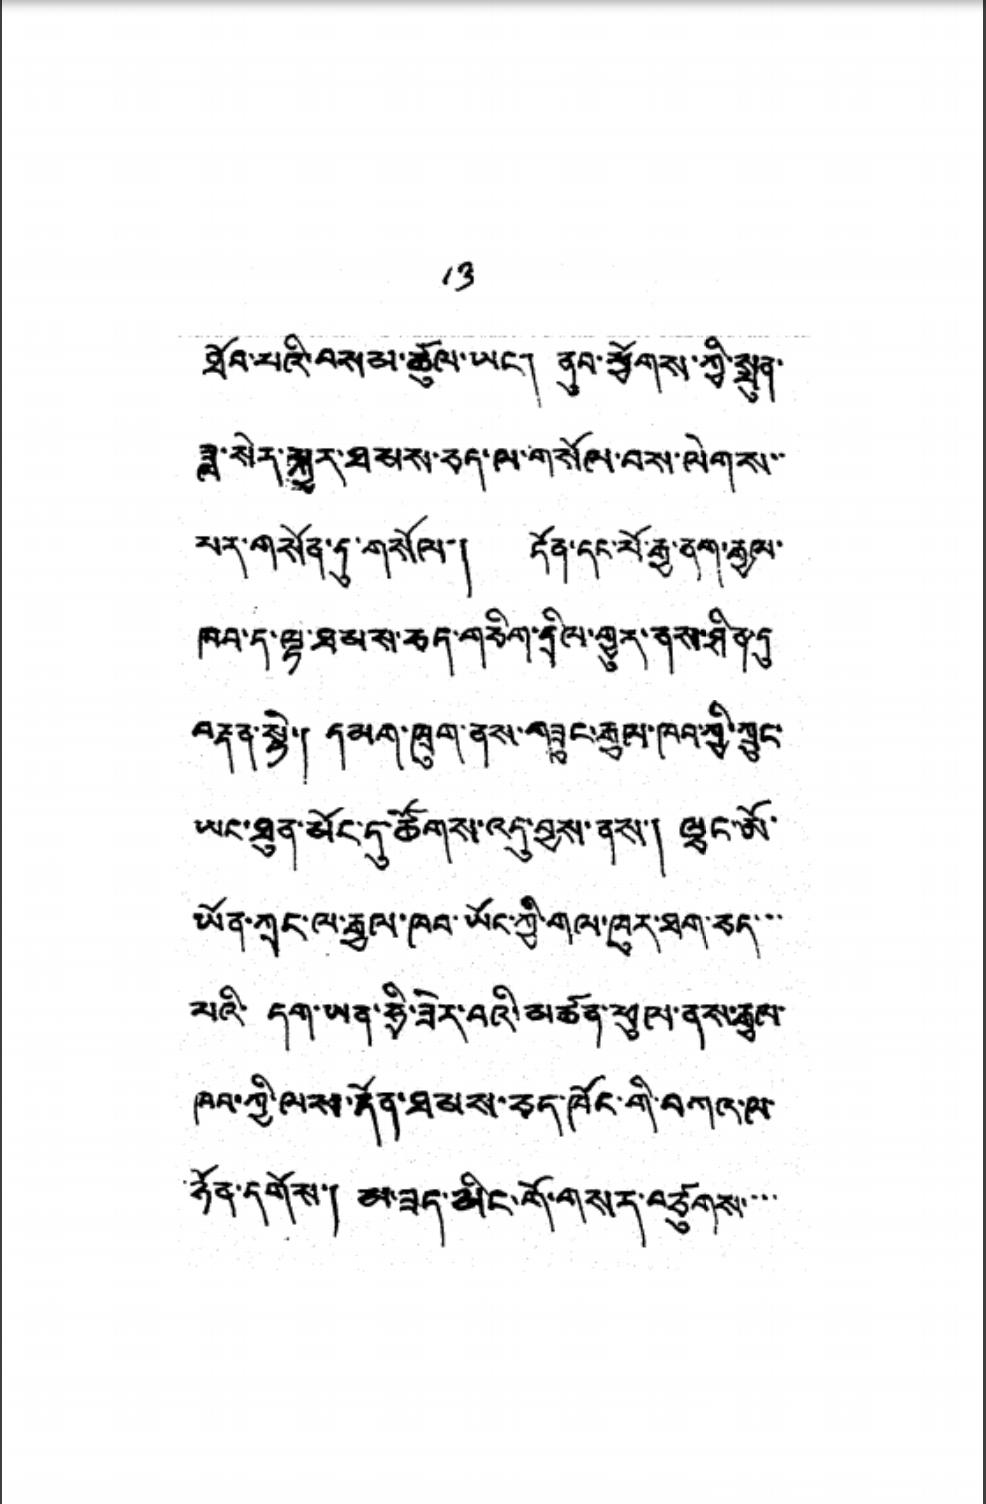 13
ཐོབ་པའི་བསམ་ཚུལ་ཡང་། ནུབ་ཕྱོགས་ཀྱི་སྤུན་
ཟླ་སེར་སྐྱར་ཐམས་ཅད་ལ་གསོལ་བས་ལེགས་
པར་གསོན་དུ་གསོལ། དོན་དང་པོ་རྒྱ་ནག་རྒྱལ་
ཁབ་ད་ལྟ་ཐམས་ཅད་གཅིག་དྲིལ་གྱུར་ནས་ཤིན་ཏུ་
བརྟན་སྟེ། དམག་ཁྲུག་ནས་གཟུང་རྒྱལ་ཁབ་ཀྱི་ཀྲུང་
ཡང་ཐུན་མོང་དུ་ཚོགས་འདུ་བྱས་ནས། ལྷང་མོ་
ཡོན་ཀྲང་ལ་རྒྱལ་ཁབ་ཡོང་ཀྱི་གལ་ཁུར་ཐག་ཅད་
པའི་ དག་ཡན་ཧྲི་ཟེར་བའི་མཚོན་ཕུལ་ནས་རྒྱལ་
ཁབ་ཀྱི་ལས་དོན་ཐམས་ཅད་ཁོང་གི་བཀའ་ལ་
ཉོན་དགོས། མ་ཟད་མིང་གོ་གསར་བཙུགས་